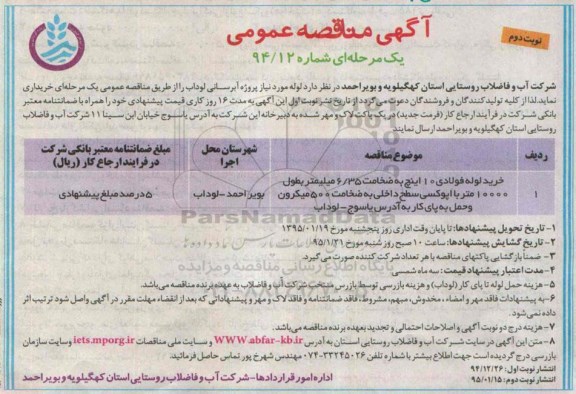 آگهی مناقصه عمومی
نوبت دوم
یک مرحله‌ای شماره ۹۴/۱۲
شرکت آب و فاضلاب روستایی استان کهگیلویه و بویراحمد در نظر دارد لوله مورد نیاز پروژه آبرسانی لوداب را از طریق مناقصه عمومی یک مرحله‌ای خریداری
نماید. لذا از کلیه تولیدکنندگان و فروشندگان دعوت می‌گردد از تاریخ نشر نوبت اول این آگهی به مدت ۱۶ روز کاری قیمت پیشنهادی خود را همراه با ضمانتنامه معتبر
بانکی شرکت در فرایند ارجاع کار (فرمت جدید) در یک پاکت لاک و مهر شده به دبیرخانه این شرکت به آدرس یاسوج خیابان ابن سینا ۱۱ شرکت آب و فاضلاب
روستایی استان کهگیلویه و بویراحمد ارسال نمایند.
ردیف
موضوع مناقصه
شهرستان محل اجرا
مبلغ ضمانتنامه معتبر بانکی شرکت در فرایند ارجاع کار (ریال)
۱
خرید لوله فولادی ۱۰ اینچ به ضخامت ۶/۳۵ میلیمتر بطول
۱۰۰۰۰ متر با اپوکسی سطح داخلی به ضخامت ۵۰۰ میکرون
وحمل به پای کار به آدرس یاسوج - لوداب
بویر احمد - لوداب
۵ درصد مبلغ پیشنهادی
ParsNamadData
پایگاه اطلاع رسانی مناقصه و مزایده
۱- تاریخ تحویل پیشنهادها: تا پایان وقت اداری روز پنجشنبه مورخ ۱۳۹۵/۰۱/۱۹
۲- تاریخ گشایش پیشنهادها: ساعت ۱۰ صبح روز شنبه مورخ ۹۵/۱/۲۱
۳- ضمنا بازگشایی پاکتهای مناقصه با هر تعداد شرکت کننده صورت می‌گیرد.
۴- مدت اعتبار پیشنهاد قیمت: سه ماه شمسی
۵- هزینه حمل لوله تا پای کار (لوداب) و هزینه بازرسی توسط بازرس منتخب شرکت آب و فاضلاب به عهده برنده مناقصه می‌باشد.
۶- به پیشنهادات فاقد مهر و امضاء، مخدوش، مبهم، مشروط، فاقد ضمانتنامه و فاقد لاک و مهر و پیشنهاداتی که بعد از انقضاء مهلت مقرر در آگهی واصل شود ترتیب اثر
داده نمی‌شود.
۷- هزینه درج دو نوبت آگهی و اصلاحات احتمالی و تجدید بعهده برنده مناقصه می‌باشد.
۸- متن این آگهی در سایت شرکت آب و فاضلاب روستایی استان به آدرس WWW.abfar-kb.ir و سایت ملی مناقصات iets.mporg.ir وسایت سازمان
بازرسی درج گردیده است جهت اطلاع بیشتر با شماره تلفن ۰۷۴-۳۳۲۴۵۰۲۶ مهندس شهرخ پور تماس حاصل فرمائید.
انتشار نوبت اول: ۹۴/۱۲/۲۶
انتشار نوبت دوم: ۹۵/۰۱/۱۵
اداره امور قراردادها - شرکت آب و فاضلاب روستایی استان کهگیلویه و بویر احمد